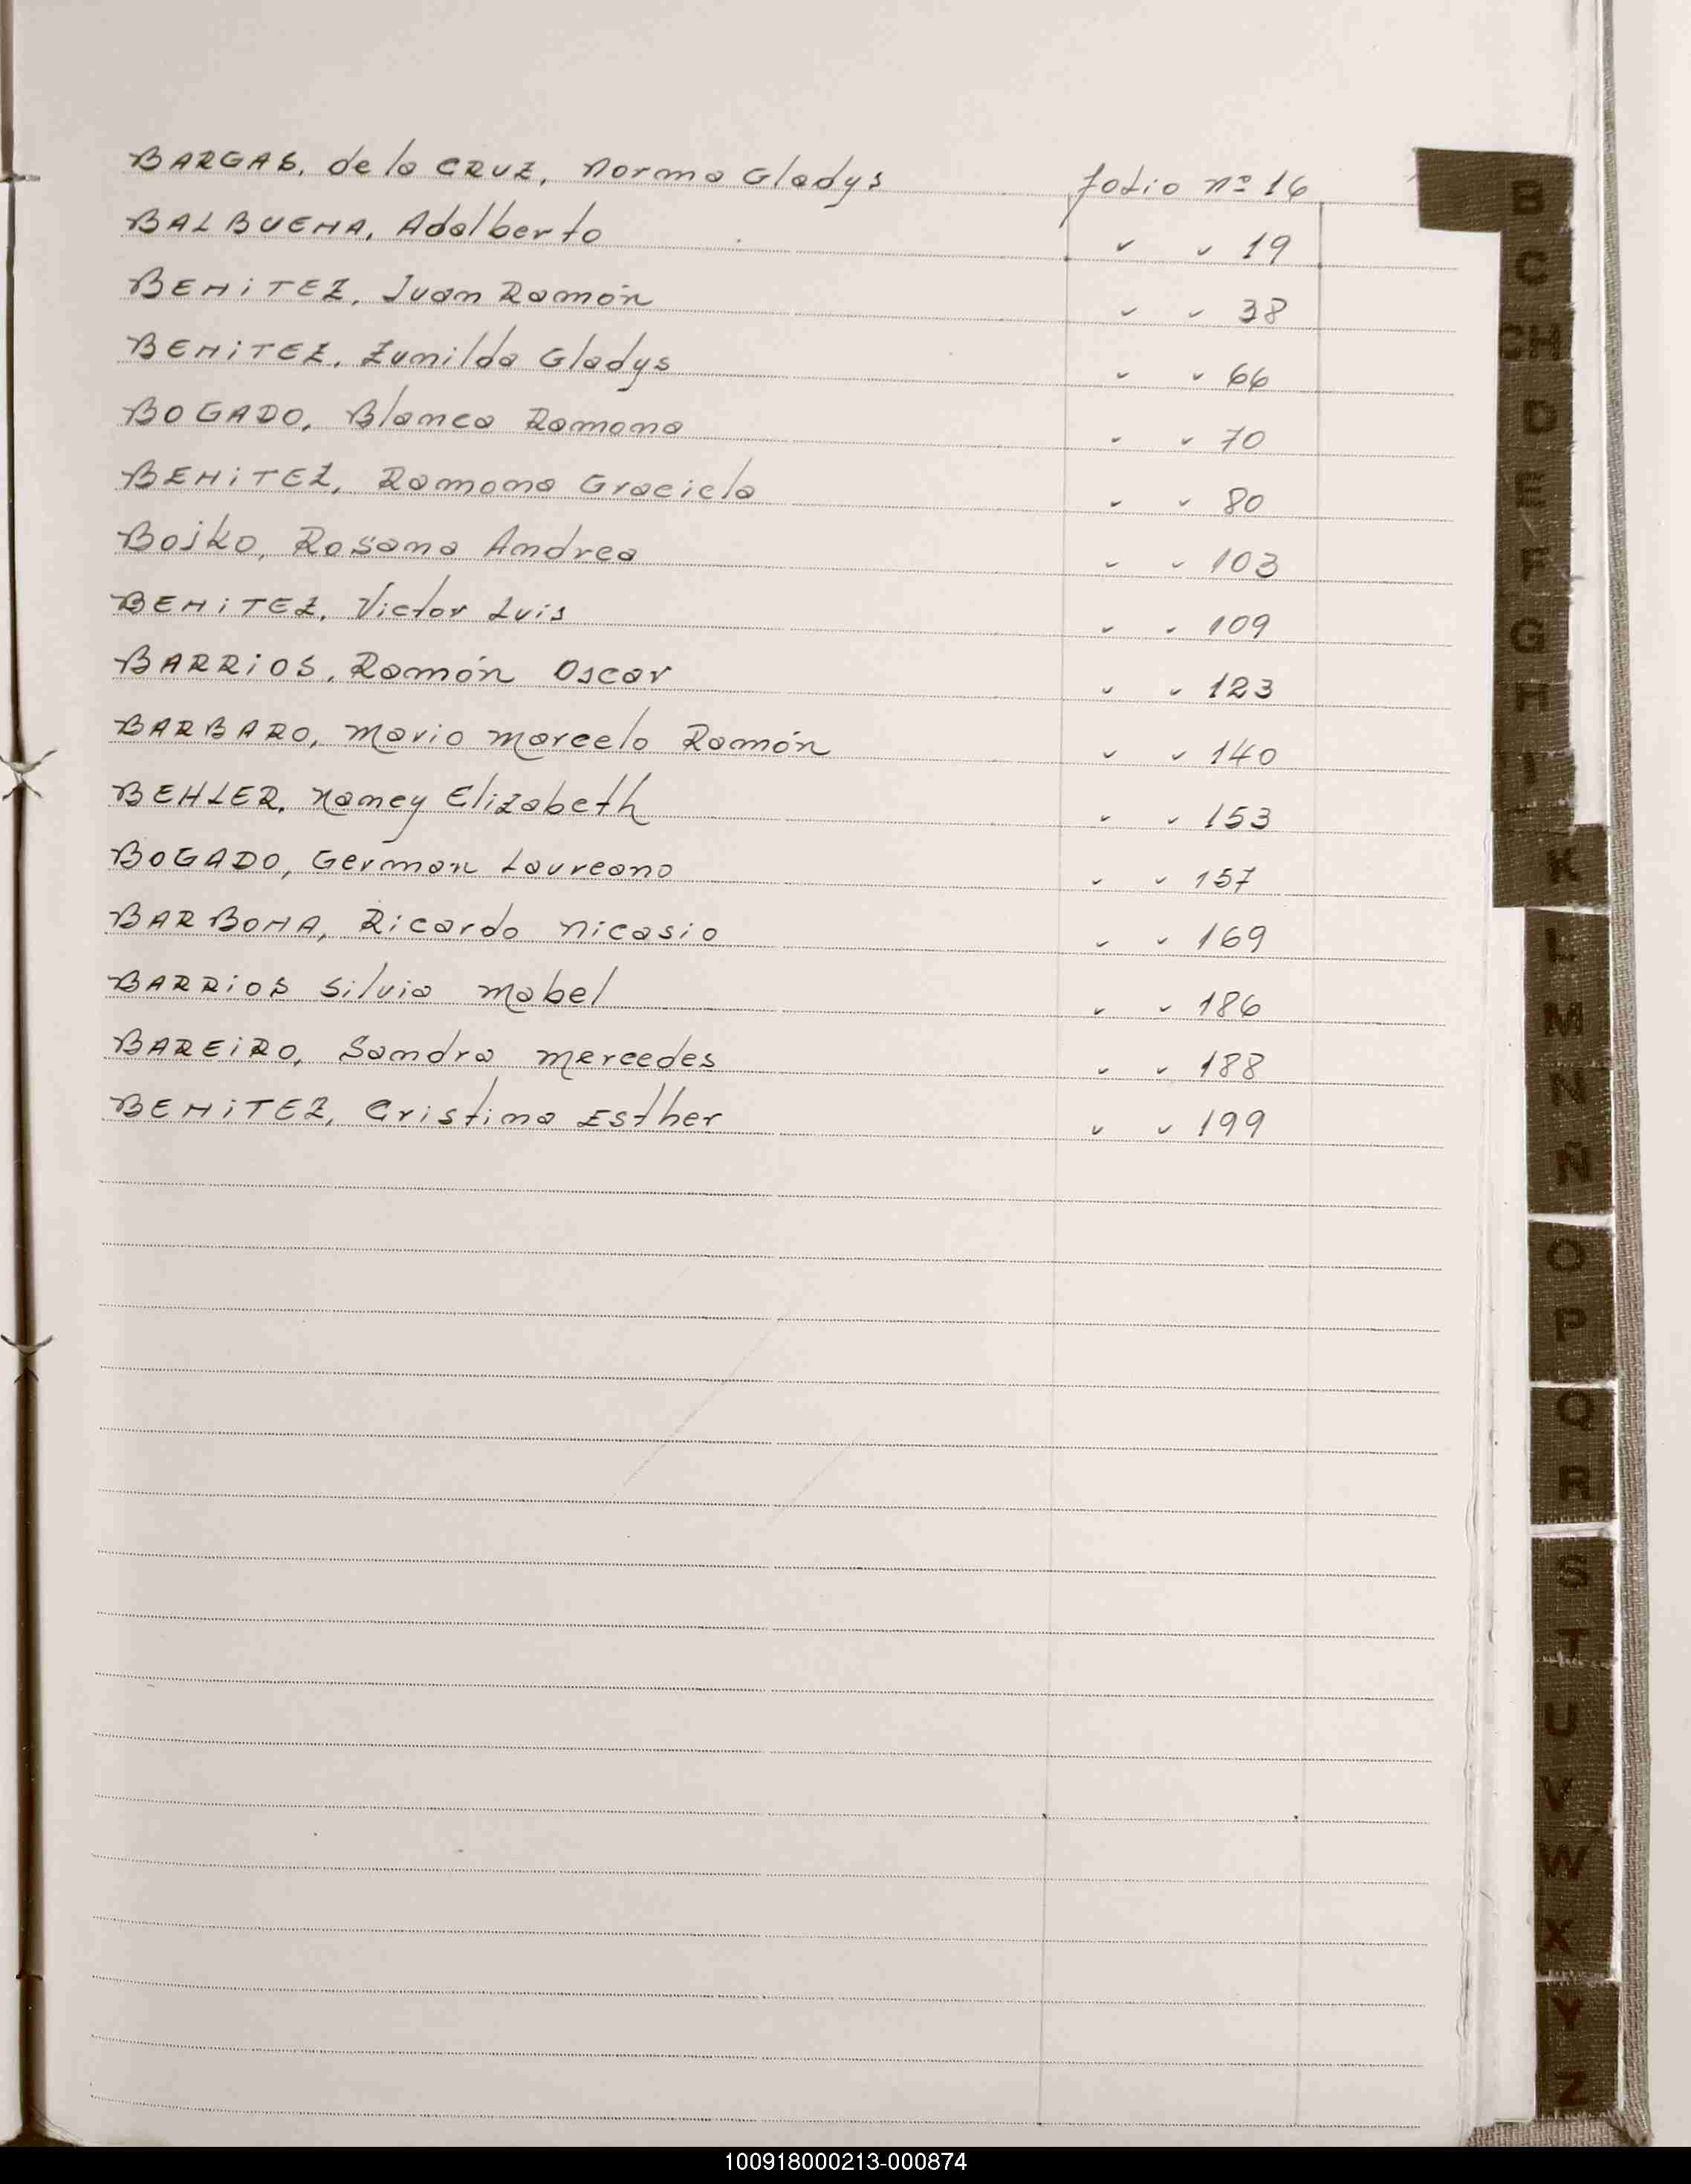 BARGAS, de la CRUZ, Norma Gladys folio nº 16
BALBUENA, Adalberto " " 19
BENiTEZ, Juan Ramón " " 38
BENiTEZ, Zunilda Gladys " " 66
BOGADO, Blanca Ramona " " 70
BENiTEZ, Ramona Graciela " " 80
Bojko, Rosana Andrea " " 103
BENiTEZ, Victor Luis " " 109
BARRiOS, Ramón Oscar " " 123
BARBARO, Mario Marcelo Ramón " " 140
BEHLER, Nancy Elizabeth " " 153
BOGADO, German Laureano " " 157
BARBONA, Ricardo Nicasio " " 169
BARRiOS Silvia Mabel " " 186
BAREiRO, Sandra Mercedes " " 188
BENiTEZ, Cristina Esther " " 199
B
C
CH
D
E
F
G
H
I
K
L
M
N
Ñ
O
P
Q
R
S
T
U
V
W
X
Y
Z
100918000213-000874